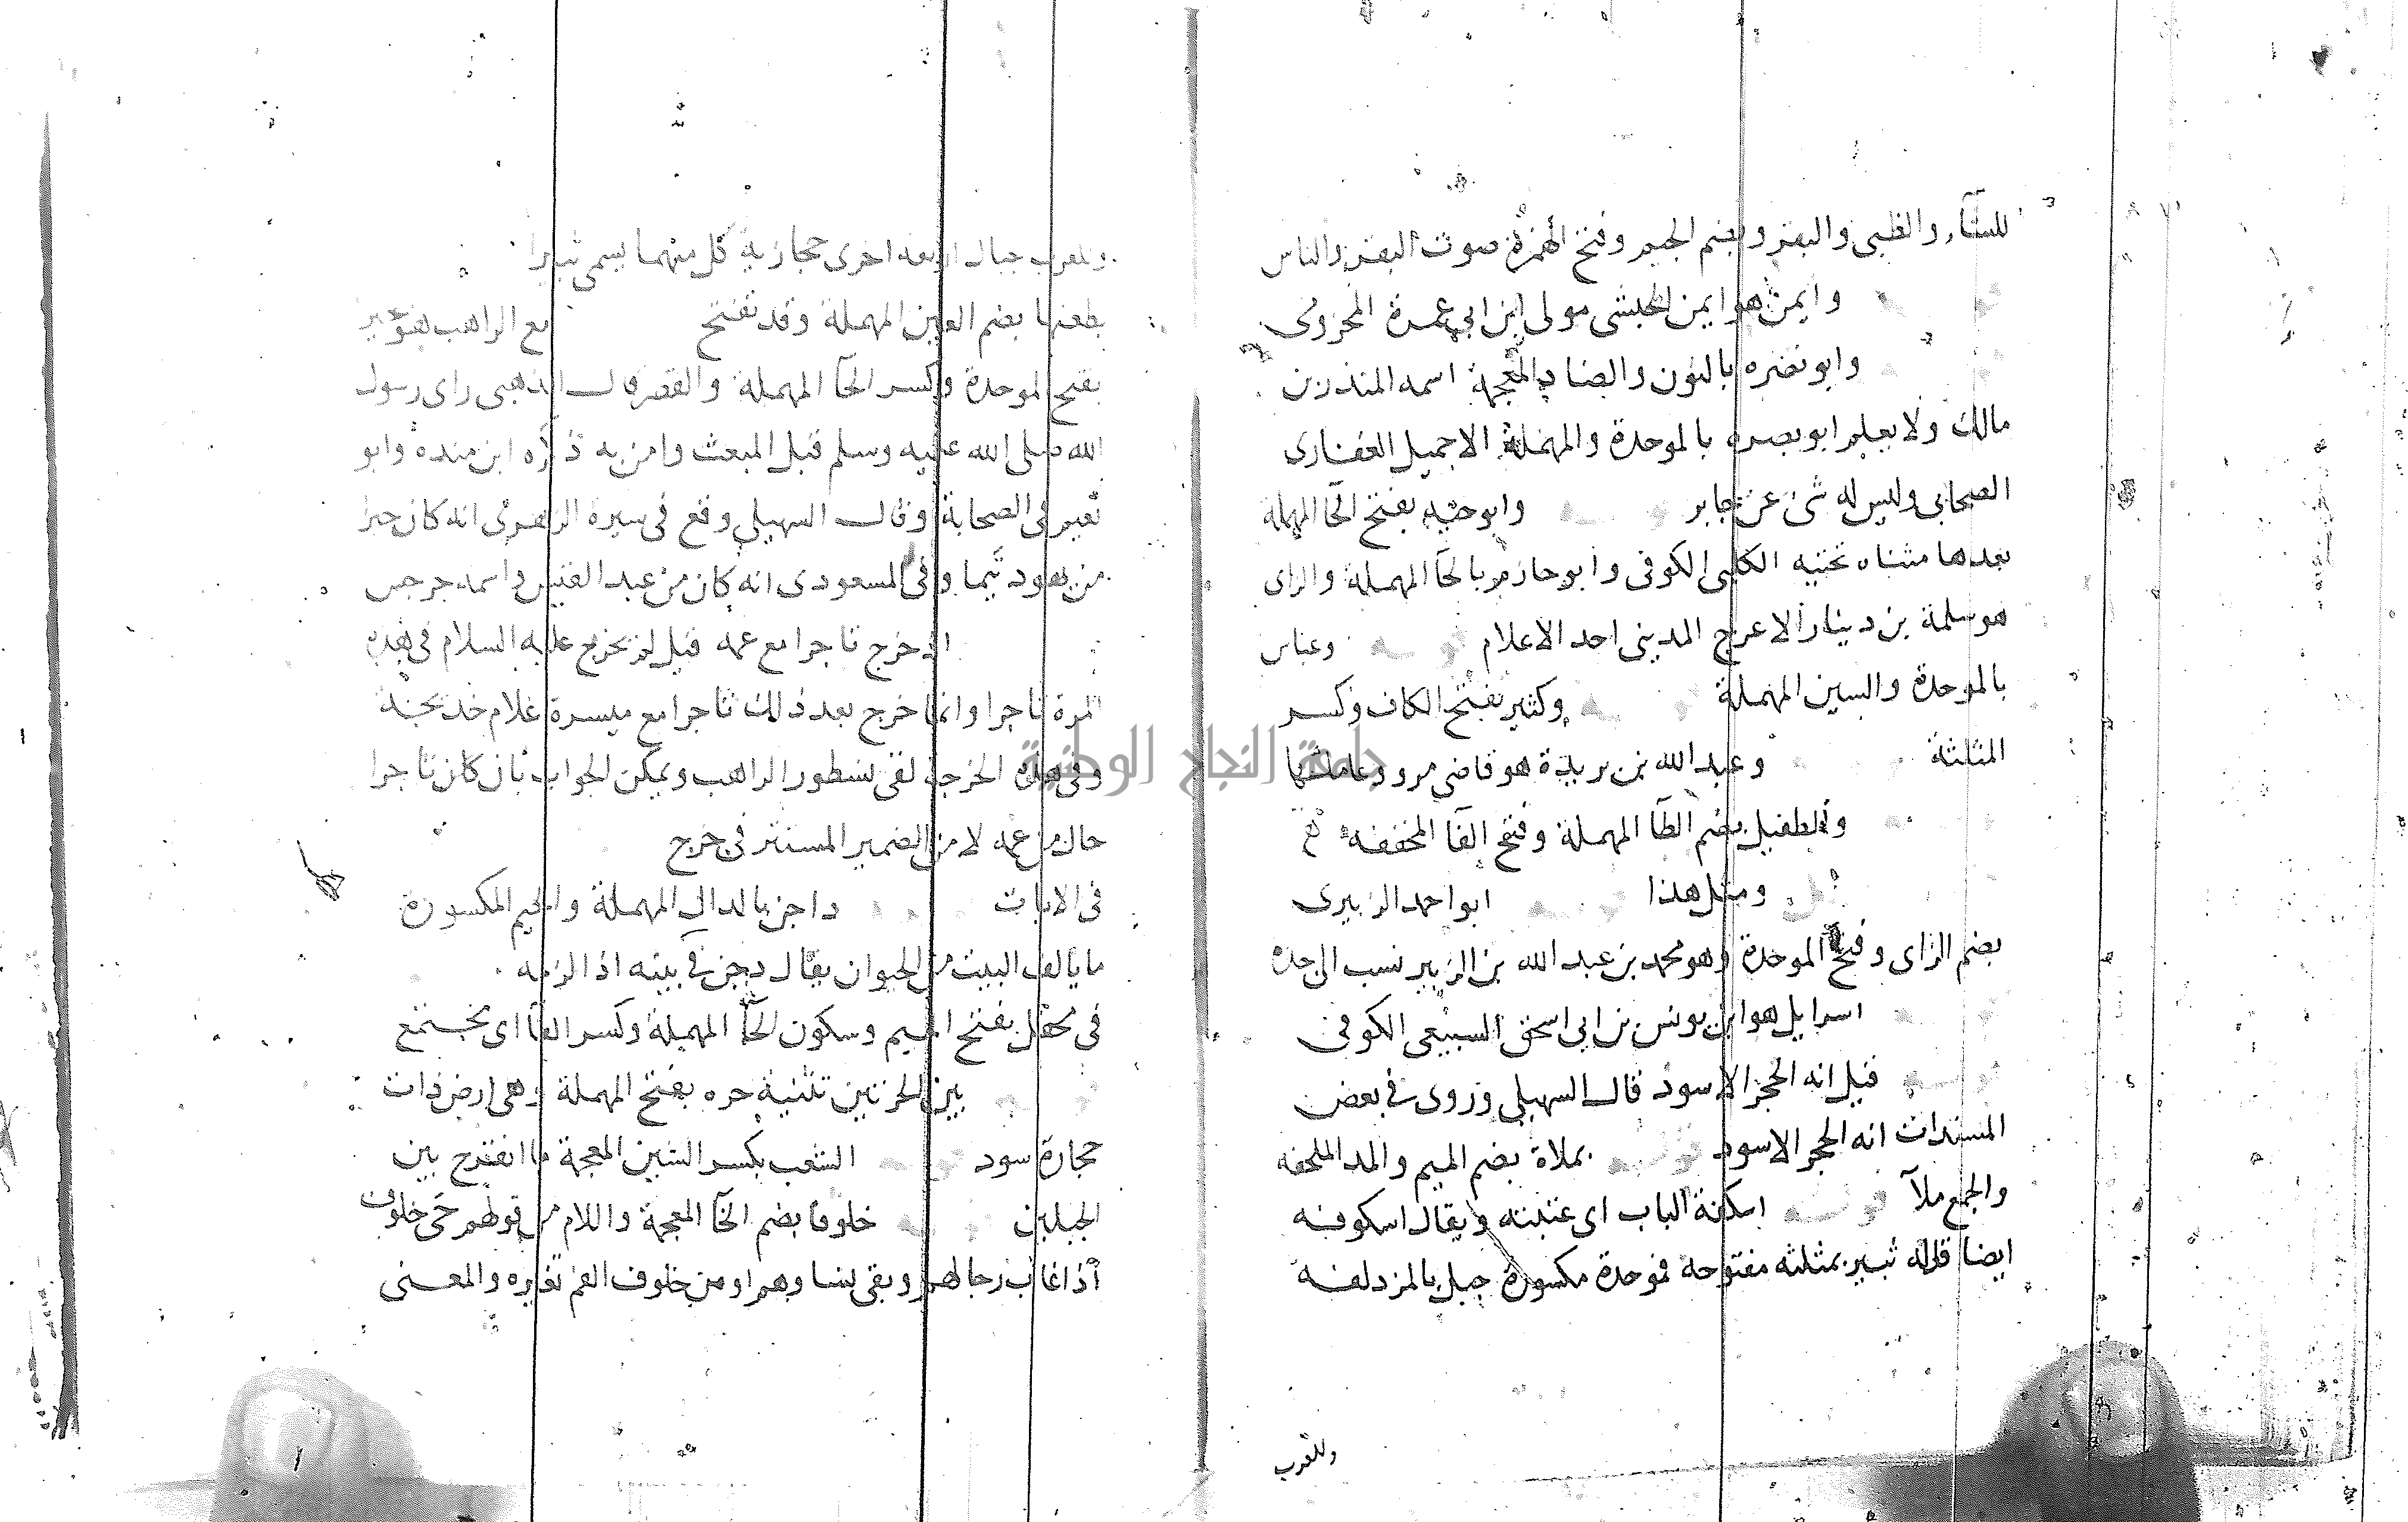 للشاء والظبى والبقر وبضم الجيم وفتح الهمزة صوت البقر والناس
وايمن هو ايمن الحبشى مولى ابن ابى عمرة المخزومى
وابو نضره بالنون والضاد المعجمة اسمه المنذر بن
مالك ولا يعلم ابو بصره بالموحدة والمهملة الا جميل الغفارى
الصحابى وليس له شئ عن جابر وابو حيه بفتح الحا المهملة
بعدها مثناه تحتيه الكلبى الكوفى وابو حازم بالحا المهملة والزاى
هو سلمة بن دينار الاعرج المدينى احد الاعلام وعباس
بالموحدة والسين المهملة وكثير بفتح الكاف وكسر
المثلثة وعبد الله بن بريدة هو قاضى مرو وعاملها
والطفيل بضم الطا المهملة وفتح الفا المخففه
ومثل هذا ابو احمد الزبيرى
بضم الزاى وفتح الموحدة وهو محمد بن عبد الله بن الزبير نسب الى جده
اسرايل هو ابن يونس بن ابى اسحق السبيعى الكوفى
قيل انه الحجر الاسود قال السهيلى وروى فى بعض
المسندات انه الحجر الاسود بملاة بضم الميم والمد الملحفه
والجمع ملآ اسكفة الباب اى عتبته ويقال اسكوفه
ايضا قوله ثبير بمثلثه مفتوحه فموحدة مكسورة جبل بالمزدلفه
وللعرب
وللعرب جبال اربعه اخرى حجازية كل منهما يسمى ثبيرا
بطعنها بضم العين المهملة وقد تفتح مع الراهب هو بحيرا
بفتح الموحدة وكسر الحا المهملة والقصر قال الذهبى راى رسول
الله صلى الله عليه وسلم قبل المبعث وامن به ذكره ابن منده وابو
نعيم فى الصحابة وقال السهيلى وقع فى سيرة الزهرى انه كان حبرا
من يهود تيما وفى المسعودى انه كان من عبد القيس واسمه جرجس
اذ خرج تاجرا مع عمه قيل لم يخرج عليه السلام فى هذه
المرة تاجرا وانما خرج بعد ذلك تاجرا مع ميسرة غلام خديجة
وفى هذه الخرجة لقى نسطور الراهب ويمكن الجواب بان كان تاجرا
حال من عمه لا من الضمير المستتر فى خرج
فى الابيات داجن بالدال المهملة والجيم المكسورة
ما يالف البيت من الحيوان يقال دجن فى بيته اذا لزمه
فى محفل بفتح الميم وسكون الحا المهملة وكسر الفا اى مجتمع
بين الحرتين تثنية حره بفتح المهملة وهى ارض ذات
حجارة سود الشعب بكسر الشين المعجمة ما انفرج بين
الجبلين خلوفا بضم الخا المعجمة واللام من قولهم حى خلوف
اذا غاب رجالهم وبقى نساوهم او من خلوف الفم تغيره والمعنى
جامعة النجاح الوطنية